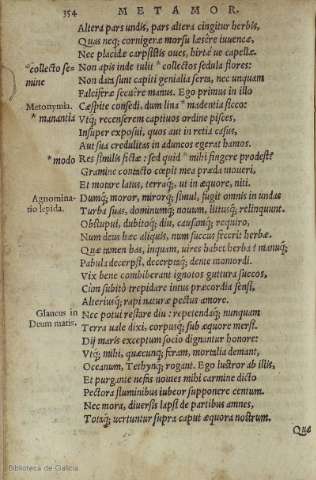 354
METAMOR.
Altera pars undis, pars altera cingitur herbis,
Quas neq; cornigeræ morsu læsêre iuuencæ,
Nec placidæ carpsistis oues, hirtæ ue capellæ.
*collecto se Non apis inde tulit * collectos sedula flores:
mine Non data sunt capiti genialia serta, nec unquam
Falciferæ secuêre manus. Ego primus in illo
Metonymia. Cæspite consedi, dum lina * madentia sicco:
* manantia Vtq; recenserem captiuos ordine pisces,
Insuper exposui, quos aut in retia casus,
Aut sua credulitas in aduncos egerat hamos.
* modo Res similis fictæ: sed quid * mihi fingere prodest?
Gramine contacto cœpit mea præda moueri,
Et motare latus, terraq; ut in æquore, niti.
Agnomina- Dumq; moror, mirorq; simul, fugit omnis in undas
tio lepida. Turba suas, dominumq; nouum, litusq; relinquunt.
Obstupui, dubitoq; diu, causamq; requiro,
Num deus hæc aliquis, num succus fecerit herbæ.
Quæ tamen has, inquam, uires habet herba? manuq;
Pabula decerpsi, decerptaq; dente momordi.
Vix bene combiberant ignotos guttura succos,
Cùm subitò trepidare intus præcordia sensi,
Alteriusq; rapi naturæ pectus amore.
Glaucus in Nec potui restare diu: repetendaq; nunquam
Deum maris. Terra uale dixi, corpusq; sub æquore mersi.
Dij maris exceptum socio dignantur honore:
Vtq; mihi, quæcunq; feram, mortalia demant,
Oceanum, Tethynq; rogant. Ego lustror ab illis,
Et purgante nefas nouies mihi carmine dicto
Pectora fluminibus iubeor supponere centum.
Nec mora, diuersis lapsi de partibus amnes,
Totaq; uertuntur supra caput æquora nostrum.
Quæ
Biblioteca de Galicia